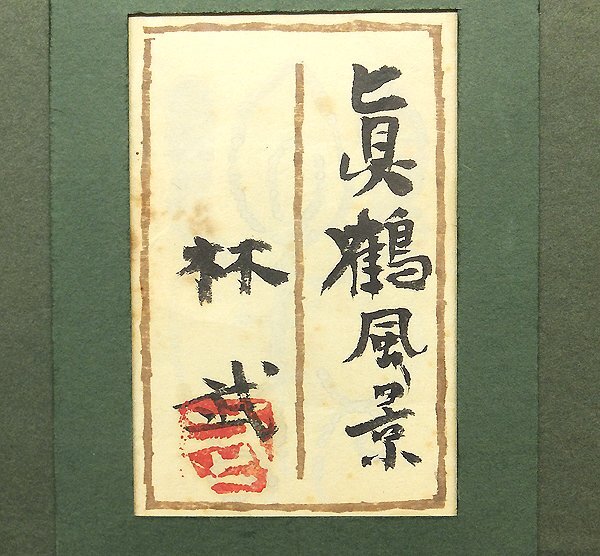 眞鶴風景
林武